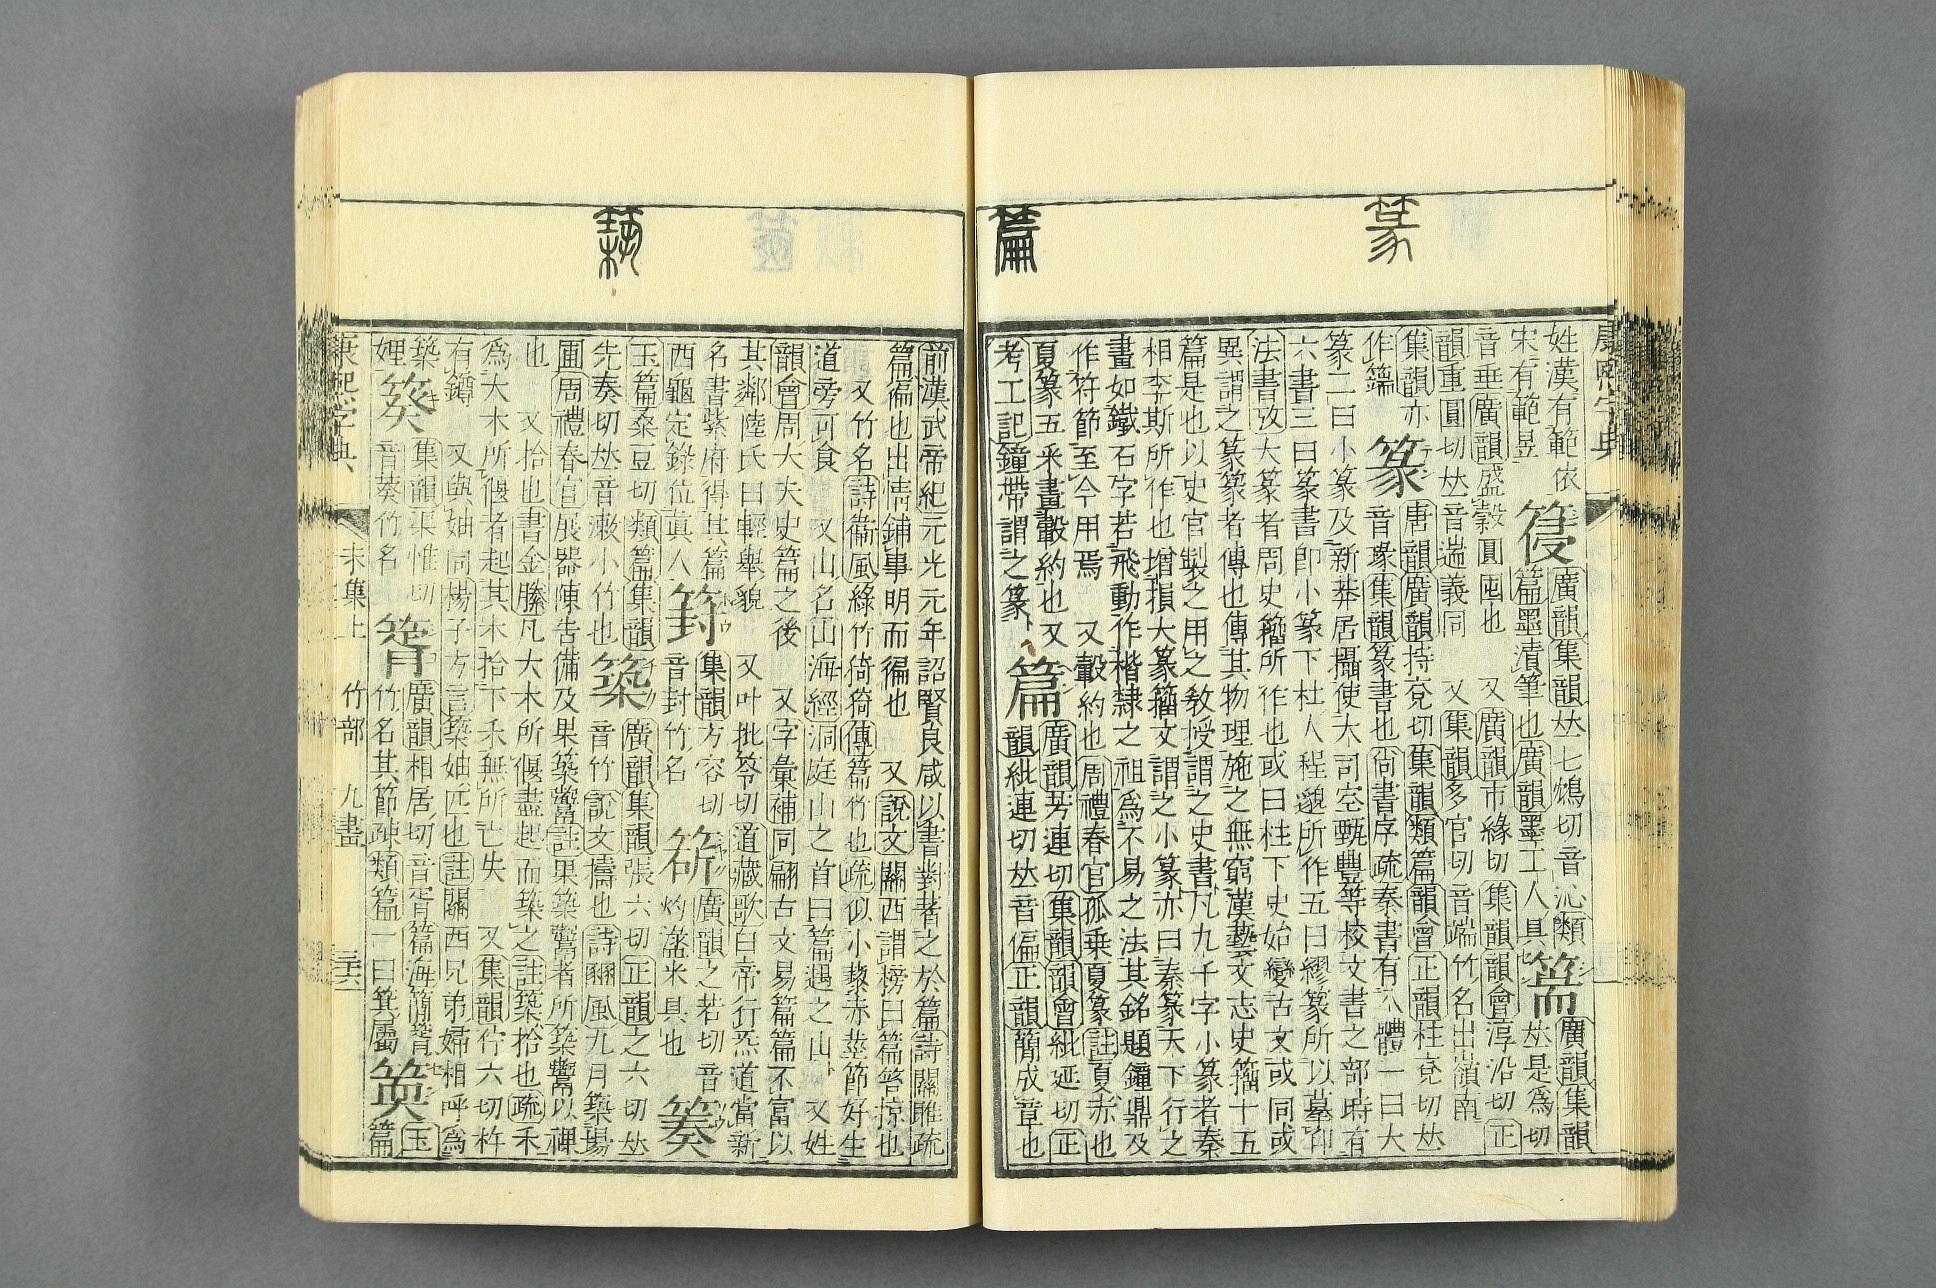 篆
篇
康熙字典
姓漢有範依
宋有範昱
廣韻集韻𠀤七鴆切音沁類
篇墨漬筆也廣韻墨工人具也
篅
廣韻集韻
𠀤是爲切
音垂廣韻盛榖圓囤也 又廣韻市緣切集韻韻會淳沿切正
韻重圓切𠀤音遄義同 又集韻多官切音端竹名出嶺南
集韻亦
作
篆
唐韻廣韻持兗切集韻類篇韻會正韻柱兗切𠀤
音瑑集韻篆書也尚書序疏秦書有八體一曰大
篆二曰小篆及新莽居攝使大司空甄豐等校文書之部時有
六書三曰篆書卽小篆下杜人程邈所作五曰繆篆所以摹印
法書攷大篆者周史籀所作也或曰柱下史始變古文或同或
異謂之篆篆者傳也傳其物理施之無窮漢藝文志史籀十五
篇是也以史官製之用之敎授謂之史書凡九千字小篆者秦
相李斯所作也增損大篆籀文謂之小篆亦曰秦篆天下行之
畫如鐵石字若飛動作楷隸之祖爲不易之法其銘題鐘鼎及
作符節至今用焉 又轂約也周禮春官孤乗夏篆註夏赤也
夏篆五采畫轂約也又
考工記鐘帶謂之篆
篇
廣韻芳連切集韻韻會紕延切正
韻紕連切𠀤音偏正韻簡成章也
築
前漢武帝紀元光元年詔賢良咸以書對著之於篇詩關雎疏
篇徧也出淸鋪事明而徧也 又說文關西謂榜曰篇笞掠也
又竹名詩衞風綠竹猗猗傳篇竹也疏似小藜赤莖節好生
道旁可食 又山名山海經洞庭山之首曰篇遇之山 又姓
韻會周大夫史篇之後 又字彙補同翩古文易篇篇不富以
其鄰陸氏曰輕舉貌 又叶批笭切道藏歌白帝行炁道當新
名書紫府得其篇
西龜定錄位眞人
篈
集韻方容切
音封竹名
廣韻之若切音
灼 米具也
玉篇桑豆切類篇集韻
先奏切𠀤音漱小竹也
築
廣韻集韻張六切正韻之六切𠀤
音竹說文擣也詩豳風九月築場
圃周禮春官展器陳告備及果築鬻註果築鬻者所築鬻以祼
也 又拾也書金縢凡大木所偃盡起而築之註築拾也疏禾
爲大木所偃者起其木拾下禾無所亡失 又集韻佇六切杵
有鐏 又與妯同楊子方言築妯匹也註關西兄弟婦相呼爲
築
娌
集韻渠惟切
音葵竹名
廣韻相居切音胥篇海簡 也
竹名其節疎類篇一曰箕屬
玉
篇
康熙字典 未集上 竹部 九畫 三六